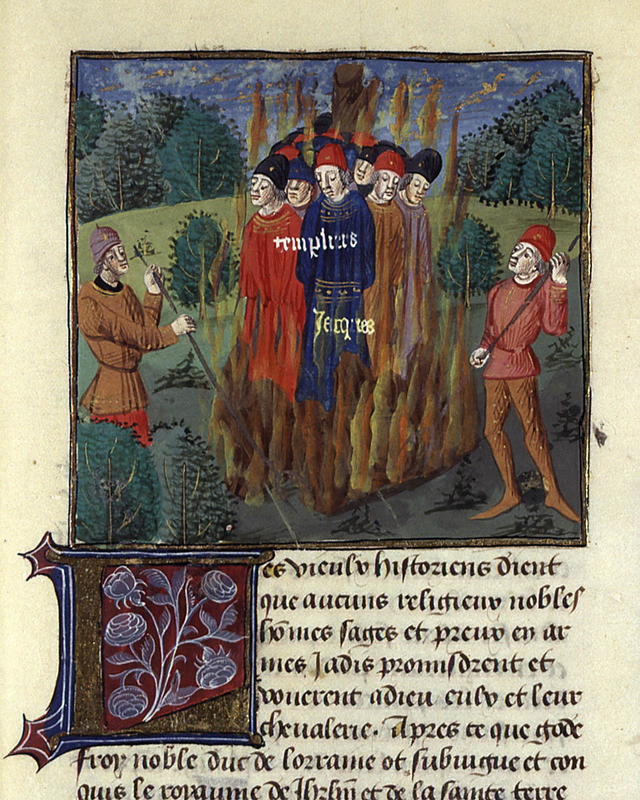 templiers
Jacques
Les vieulx historiens dient
que aucuns religieux nobles
hōmes sages et preux en ar
mes Jadis promisdrent et
vouerent adieu eulx et leur
chevalerie. Apres ce que gode
froy noble duc de lorraine ot subiugue et con
quis le royaume de Jhrlm̄ et de la sainte terre